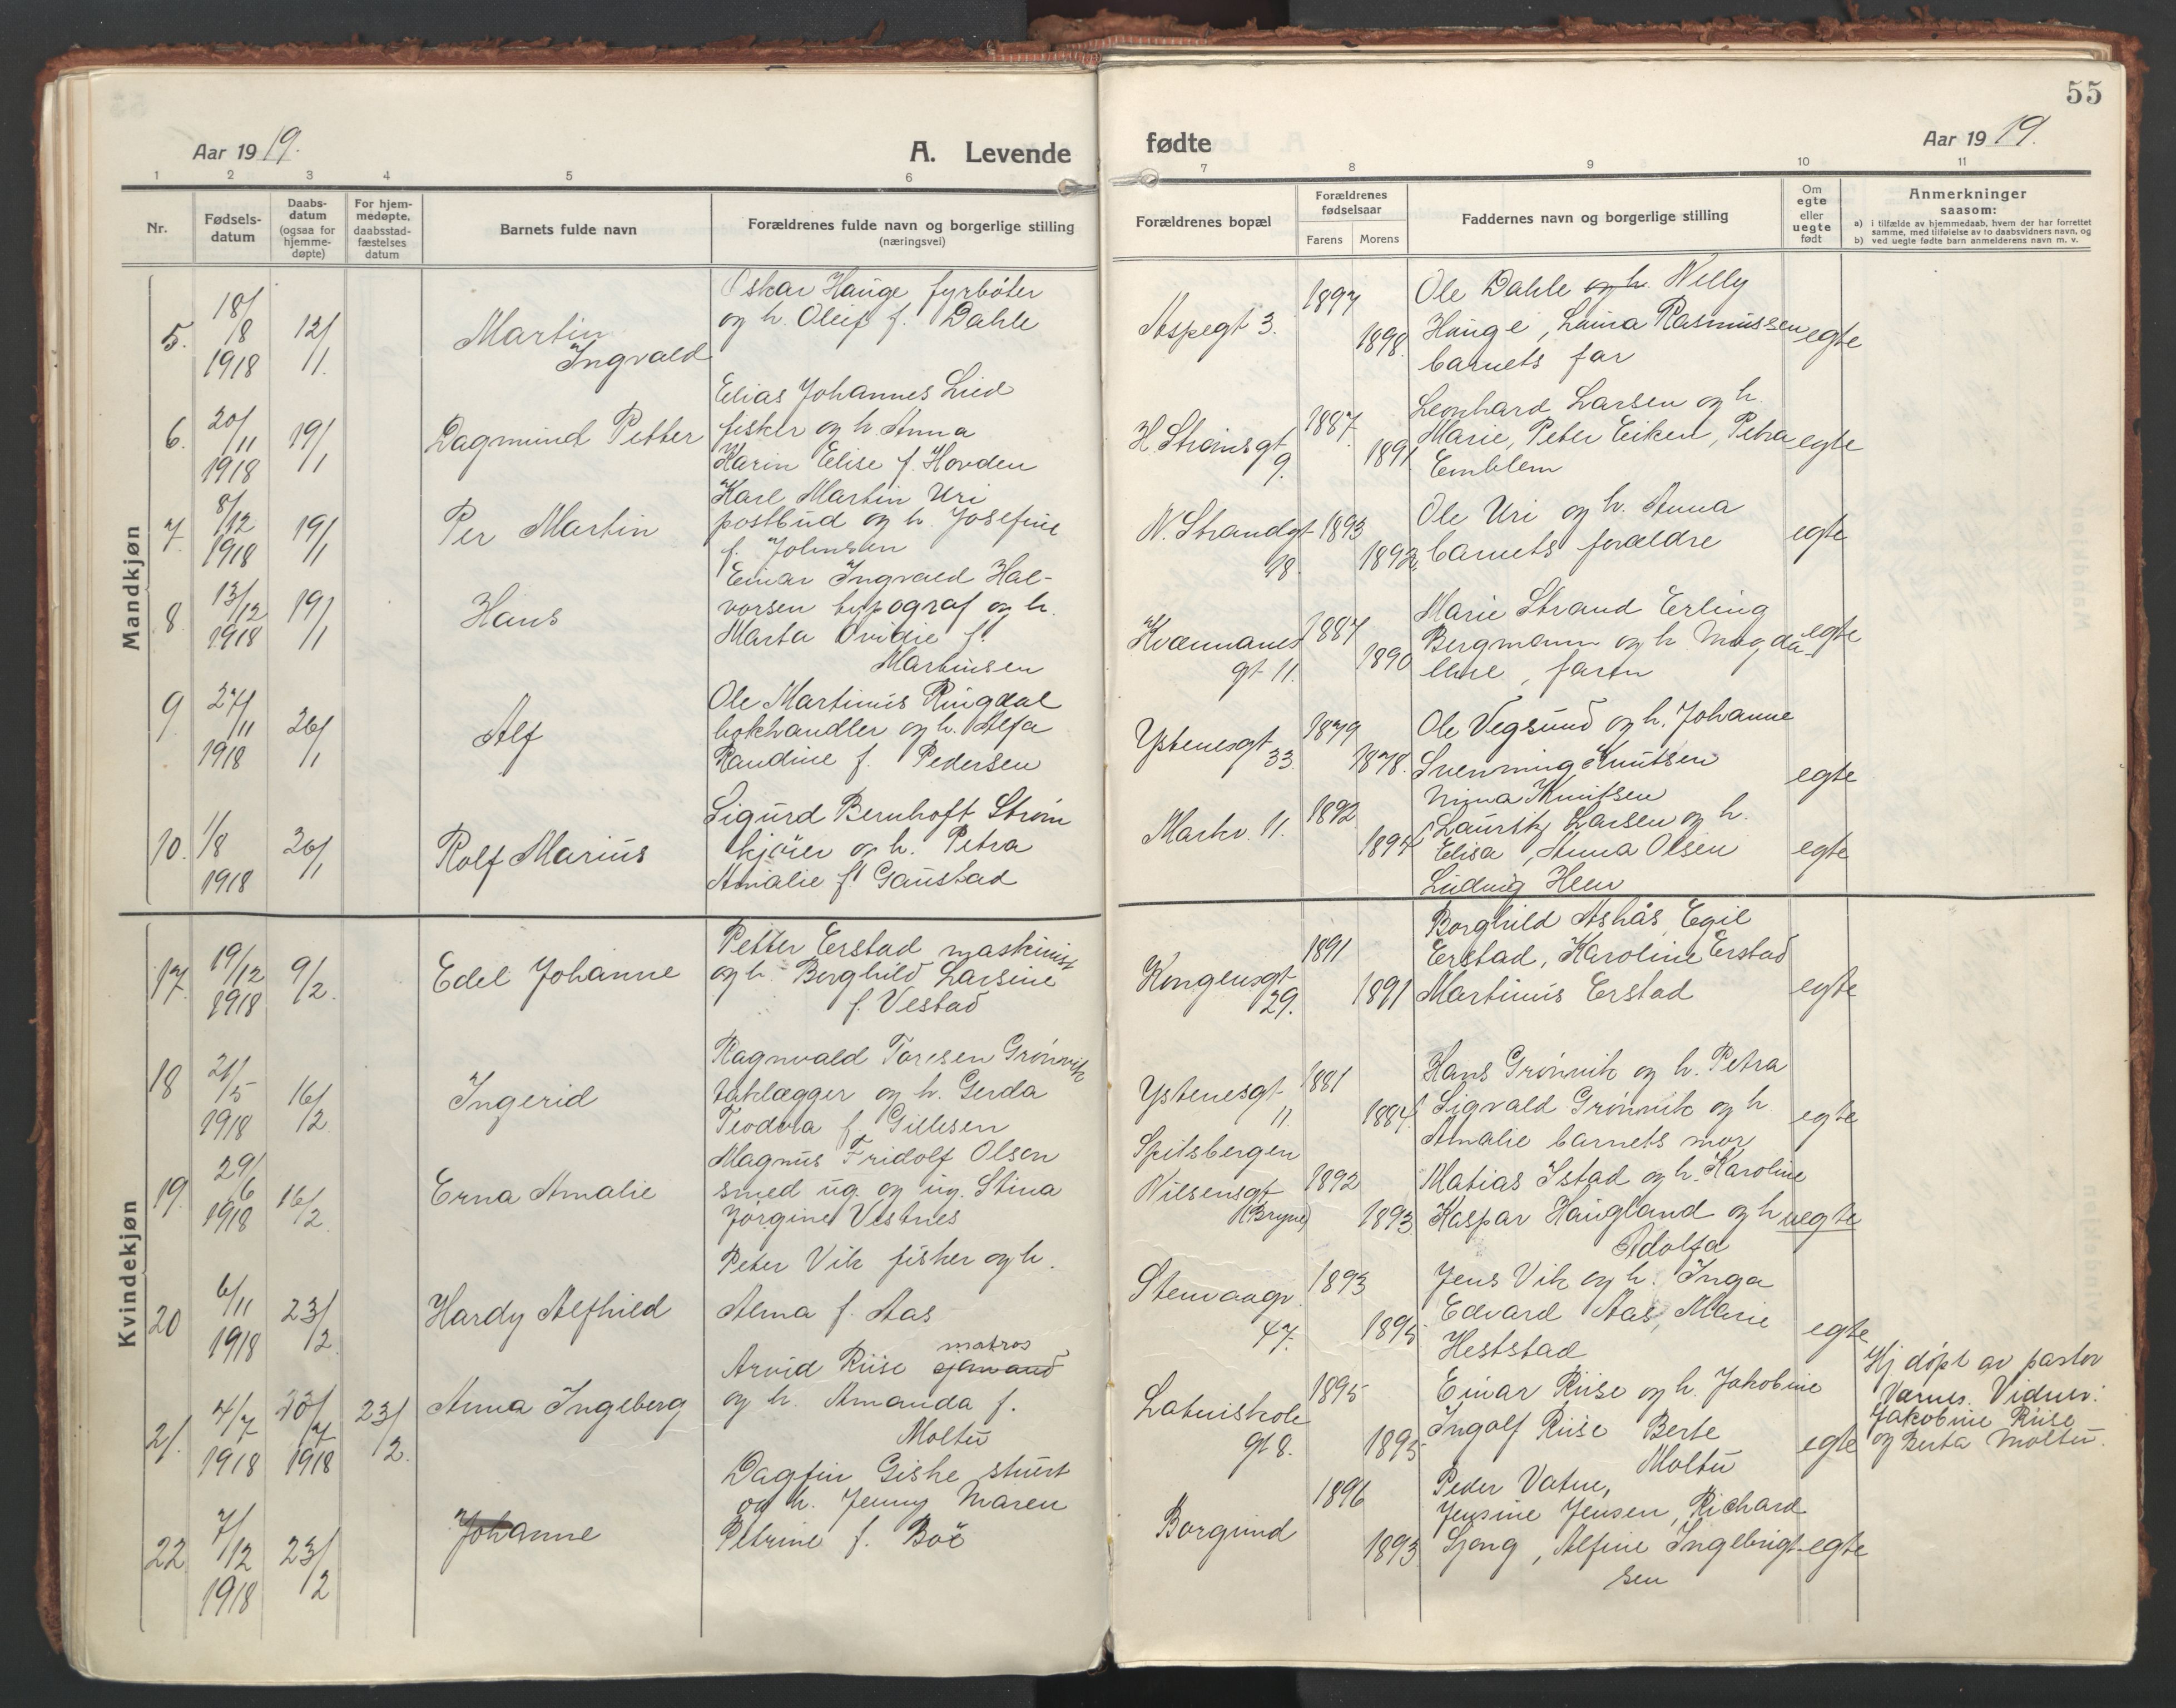 55
Aar 1919.
A. Levende
fødte
Aar 1919.
1 2 3 4 5 6 7 8 9 10 11
Nr.
Fødsels-
datum
Daabs-
datum
(ogsaa for
hjemme-
døpte)
For hjem-
medøpte,
daabsstad-
fæstelses
datum
Barnets fulde navn
Forældrenes fulde navn og borgerlige stilling
(næringsvei)
Forældrenes bopæl
Forældrenes
fødselsaar
Farens Morens
Faddernes navn og borgerlige stilling
Om
egte
eller
uegte
født
Anmerkninger
saasom:
a) i tilfælde av hjemmedaab, hvem der har forrettet
samme, med tilføielse av to daabsvidners navn, og
b) ved uegte fødte barn anmelderens navn m. v.
Mandkjøn
5. 18/8 1918 12/1.
Martin
Ingvald
Oskar Hauge fyrbøter
og h. Oleif f. Dahle
Aspegt 3.
1897
1898.
Ole Dahle og h. Nelly
Hauge, Laura Rasmussen
barnets far
egte
6. 20/11 1918 19/1
Dagmund Petter
Elias Johannes Lied
fisker og h. Anna
Karin Elise f. Hovden
H. Strømsgt
9.
1887.
1891
Leonhard Larsen og h.
Marie, Peter Eiken, Petra
Emblem
egte
7. 8/12 1918 19/1
Per Martin
Karl Martin Uri
postbud og h. Josefine
f. Johnsen
N. Strandgt
48.
1893
1892
Ole Uri og h. Anna
barnets forældre
egte
8. 13/12 1918 19/1
Hans
Einar Ingvald Hal-
vorsen typograf og h.
Marta Ovidie f.
Martinsen
Kvænnanes
gt 11.
1887
1890
Marie Strand Erling
Bergmann og h. Magda-
lene, faren
egte
9. 27/11 1918 26/1
Alf
Ole Martinus Ringdal
bokhandler og h. Alfa
Randine f. Pedersen
Ystenesgt
33.
1879
1878.
Ole Vegsund og h. Johanne
Svenning Knutsen
Nima Knutsen
egte
10. 1/8 1918 26/1
Rolf Marius
Sigurd Bernhoft Strøm
kjører og h. Petra
Amalie f. Gaustad
Markv. 11.
1892
1894
Lauritz Larsen og h.
Elisa, Anna Olsen
Ludvig Heen
egte
Kvindekjøn
17. 19/12 1918 9/2.
Edel Johanne
Petter Erstad maskinist
og h. Borghild Larsine
f. Vestad
Kongensgt
29.
1891
1891
Borghild Ashås, Egil
Erstad, Karoline Erstad
Martinus Erstad
egte
18 21/5 1918 16/2
Ingerid
Ragnvald Toresen Grønnvik
taklægger og h. Gerda
Teodora f. Gillesen
Ystenesgt
11.
1881
1884.
Hans Grønvik og h. Petra
Sigvald Grønnvik og h
Amalie barnets mor
egte
19. 29/6 1918 16/2.
Erna Amalie
Magnus Fridolf Olsen
smed ug. og ug. Stina
Jørgine Vestnes
Spitsbergen
Nilsensgt
(Bryne)
1892
1893
Matias Istad og h. Karoline
Kaspar Haugland og h
Adolfa
uegte
20 6/11 1918 23/2.
Hardy Alfhild
Peter Vik fisker og h.
Alma f. Aas
Stenvaagv.
47.
1893
1895
Jens Vik og h. Inga
Edvard Aas, Marie
Heststad
egte
21. 4/7 1918 23/7 1918 23/2.
Anna Ingeberg
matros
Arvid Riise sjømand
og h. Amanda f.
Moltu
Latinskole
gt 8.
1895
1895
Einar Riise og h. Jakobine
Ingolf Riise Berte
Moltu
egte
Hj døpt av pastor
Varnes. Vidner:
Jakobine Riise
og Berta Moltu.
22. 7/12 1918 23/2
Johanne
Dagfin Giske stuert
og h. Jenny Maren
Petrine f. Boe
Borgund
1896
1893
Peder Vatne,
Jensine Jensen, Richard
Gjeng, Alfine Ingebrigt-
sen
egte